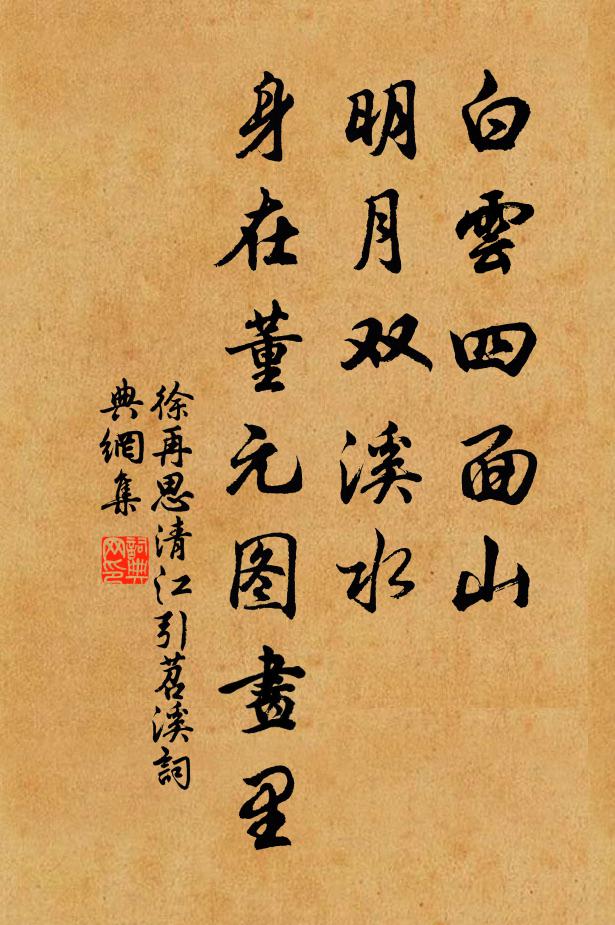 白雲四面山
明月双溪水
身在董元图畫里
徐再思清江引苕溪詞
典網集
詞典
网印